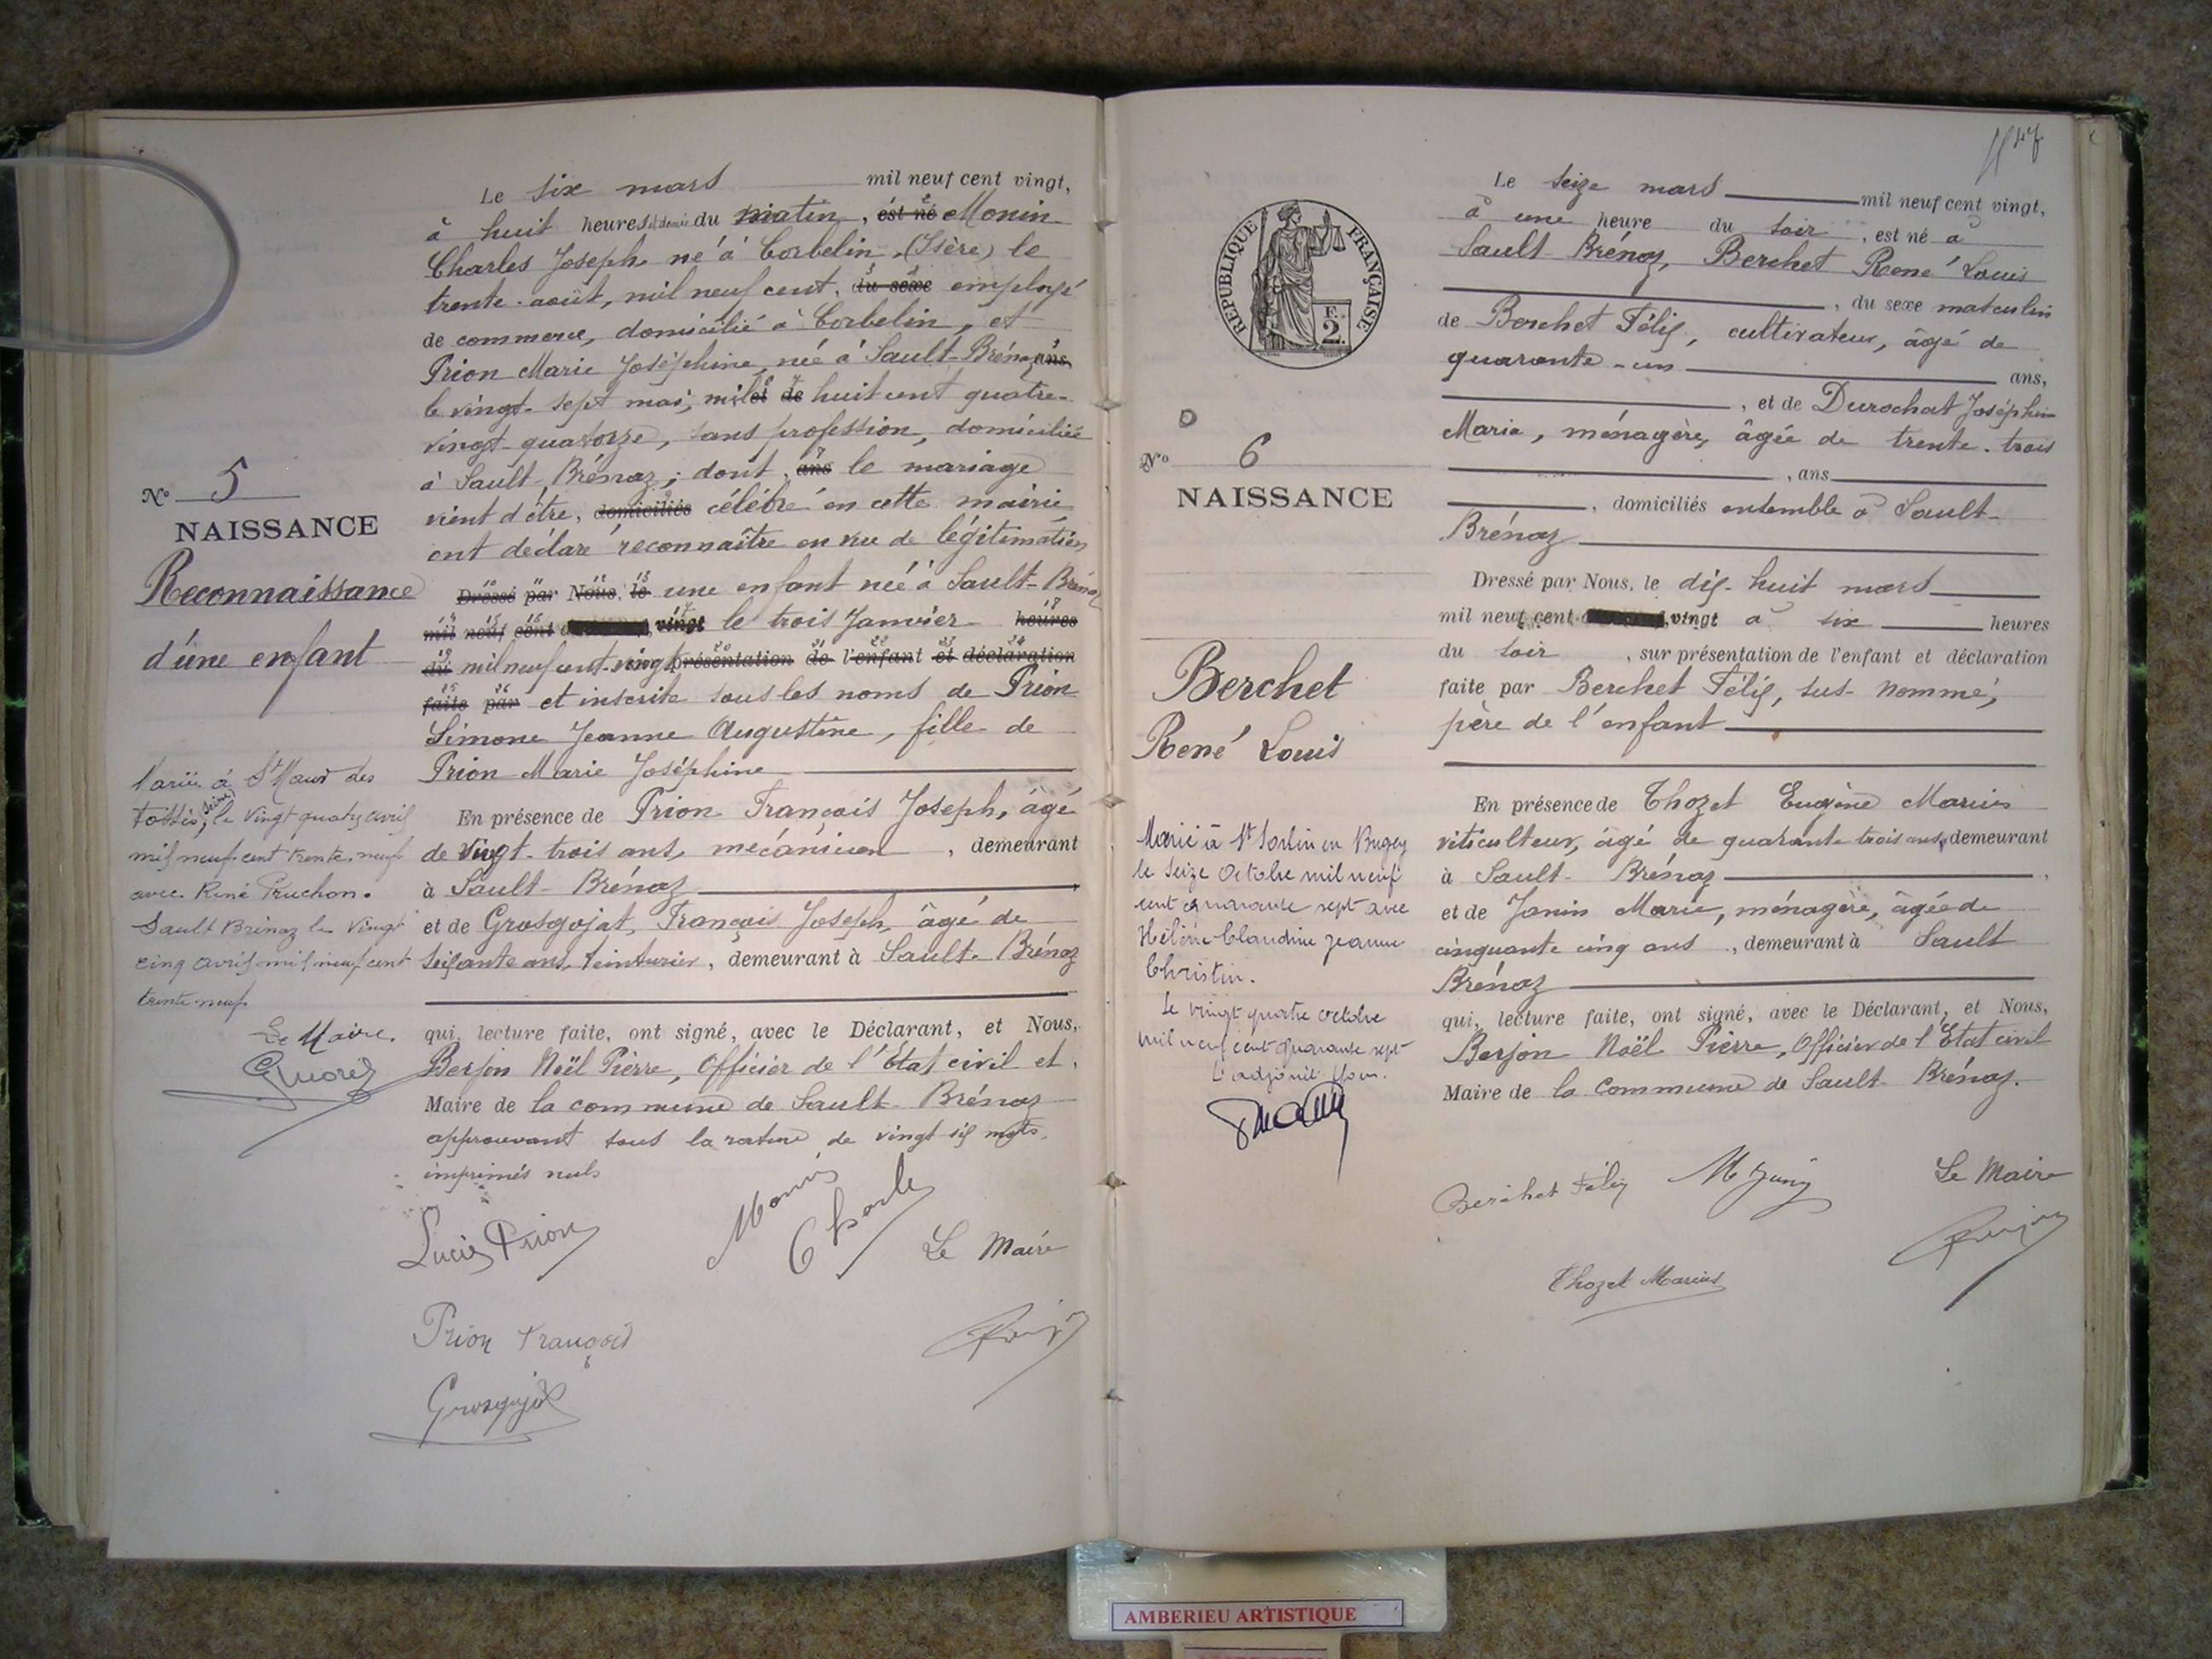 Le six mars mil neuf cent vingt,
à huit heures et demie du matin, est né Monin
Charles Joseph né à Corbelin (Isère) le
trente août, mil neuf cent, du sexe employé
de commerce, domicilié à Corbelin, et
Prion Marie Joséphine, née à Sault-Brénaz ans,
le vingt-sept mai, mil et de huit cent quatre-
vingt-quatorze, sans profession, domiciliée
à Sault-Brénaz; dont, ans le mariage
vient d'être, domiciliés célébré en cette mairie
ont déclaré reconnaître en vue de légitimation
Dressé par Nous, le une enfant née à Sault-Brénaz
mil neuf cent vingt le trois Janvier heures
du mil neuf cent vingt présentation de l'enfant et déclaration
faite par et inscrite sous les noms de Prion
Simone Jeanne Augustine, fille de
Prion Marie Joséphine
En présence de Prion François Joseph, âgé
de vingt-trois ans, mécanicien, demeurant
à Sault-Brénaz
et de Grosgojat, François Joseph, âgé de
soixante ans, teinturier, demeurant à Sault-Brénaz
qui, lecture faite, ont signé, avec le Déclarant, et Nous,
Berjon Noël Pierre, Officier de l'Etat civil et
Maire de la commune de Sault-Brénaz
approuvant tous la rature de vingt six mots
imprimés nuls
Prion
Monin
Charles
Le Maire
Prion François
Grosgojat
N° 5
NAISSANCE
Reconnaissance
d'une enfant
Mariée à St Maur des
Fossés, (Seine) le vingt quatre avril
mil neuf cent trente-neuf
avec René Pruchon.
Sault Brénaz le vingt
cinq avril mil neuf cent
trente-neuf
Le Maire.
RÉPUBLIQUE FRANÇAISE
F.
2.
N° 6
NAISSANCE
Berchet
René Louis
Marié à St Sorlin en Bugey
le seize Octobre mil neuf
cent quarante sept avec
Hélène Claudine Jeanne
Christin.
Le vingt quatre octobre
mil neuf cent quarante sept
L'adjoint
Le seize mars mil neuf cent vingt,
à une heure du soir, est né à
Sault-Brénaz, Berchet René Louis
, du sexe masculin
de Berchet Félix, cultivateur, âgé de
quarante-un ans,
, et de Durochat Joséphine
Marie, ménagère, âgée de trente-trois
, ans
, domiciliés ensemble à Sault-
Brénaz
Dressé par Nous, le dix-huit mars
mil neuf cent vingt à six heures
du soir, sur présentation de l'enfant et déclaration
faite par Berchet Félix, sus-nommé,
père de l'enfant
En présence de Thozet Eugène Marius
viticulteur, âgé de quarante-trois ans, demeurant
à Sault-Brénaz,
et de Janin Marie, ménagère, âgée de
cinquante cinq ans, demeurant à Sault
Brénaz
qui, lecture faite, ont signé, avec le Déclarant, et Nous,
Berjon Noël Pierre, Officier de l'Etat civil
Maire de la commune de Sault-Brénaz.
Berchet Félix
M Janin
Le Maire
Thozet Marius
AMBERIEU ARTISTIQUE